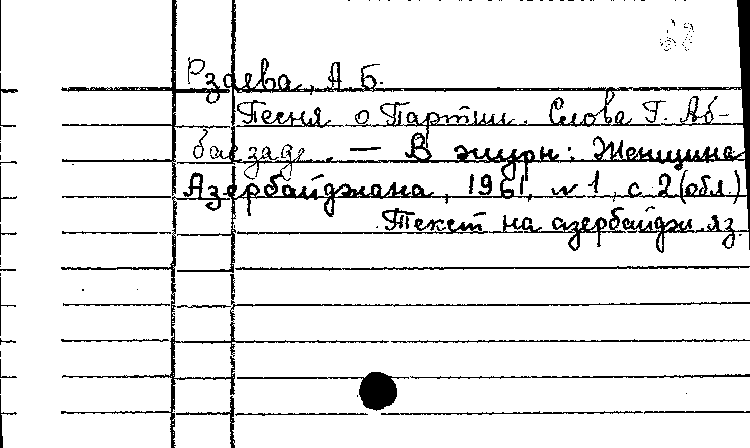 68
Рзаева, А. Б.
Песня о Партии. Слова Г. Аб-
басзаде. — В журн: Женщина
Азербайджана, 1961, № 1, с 2 (обл.)
Текст на азербайдж. яз.